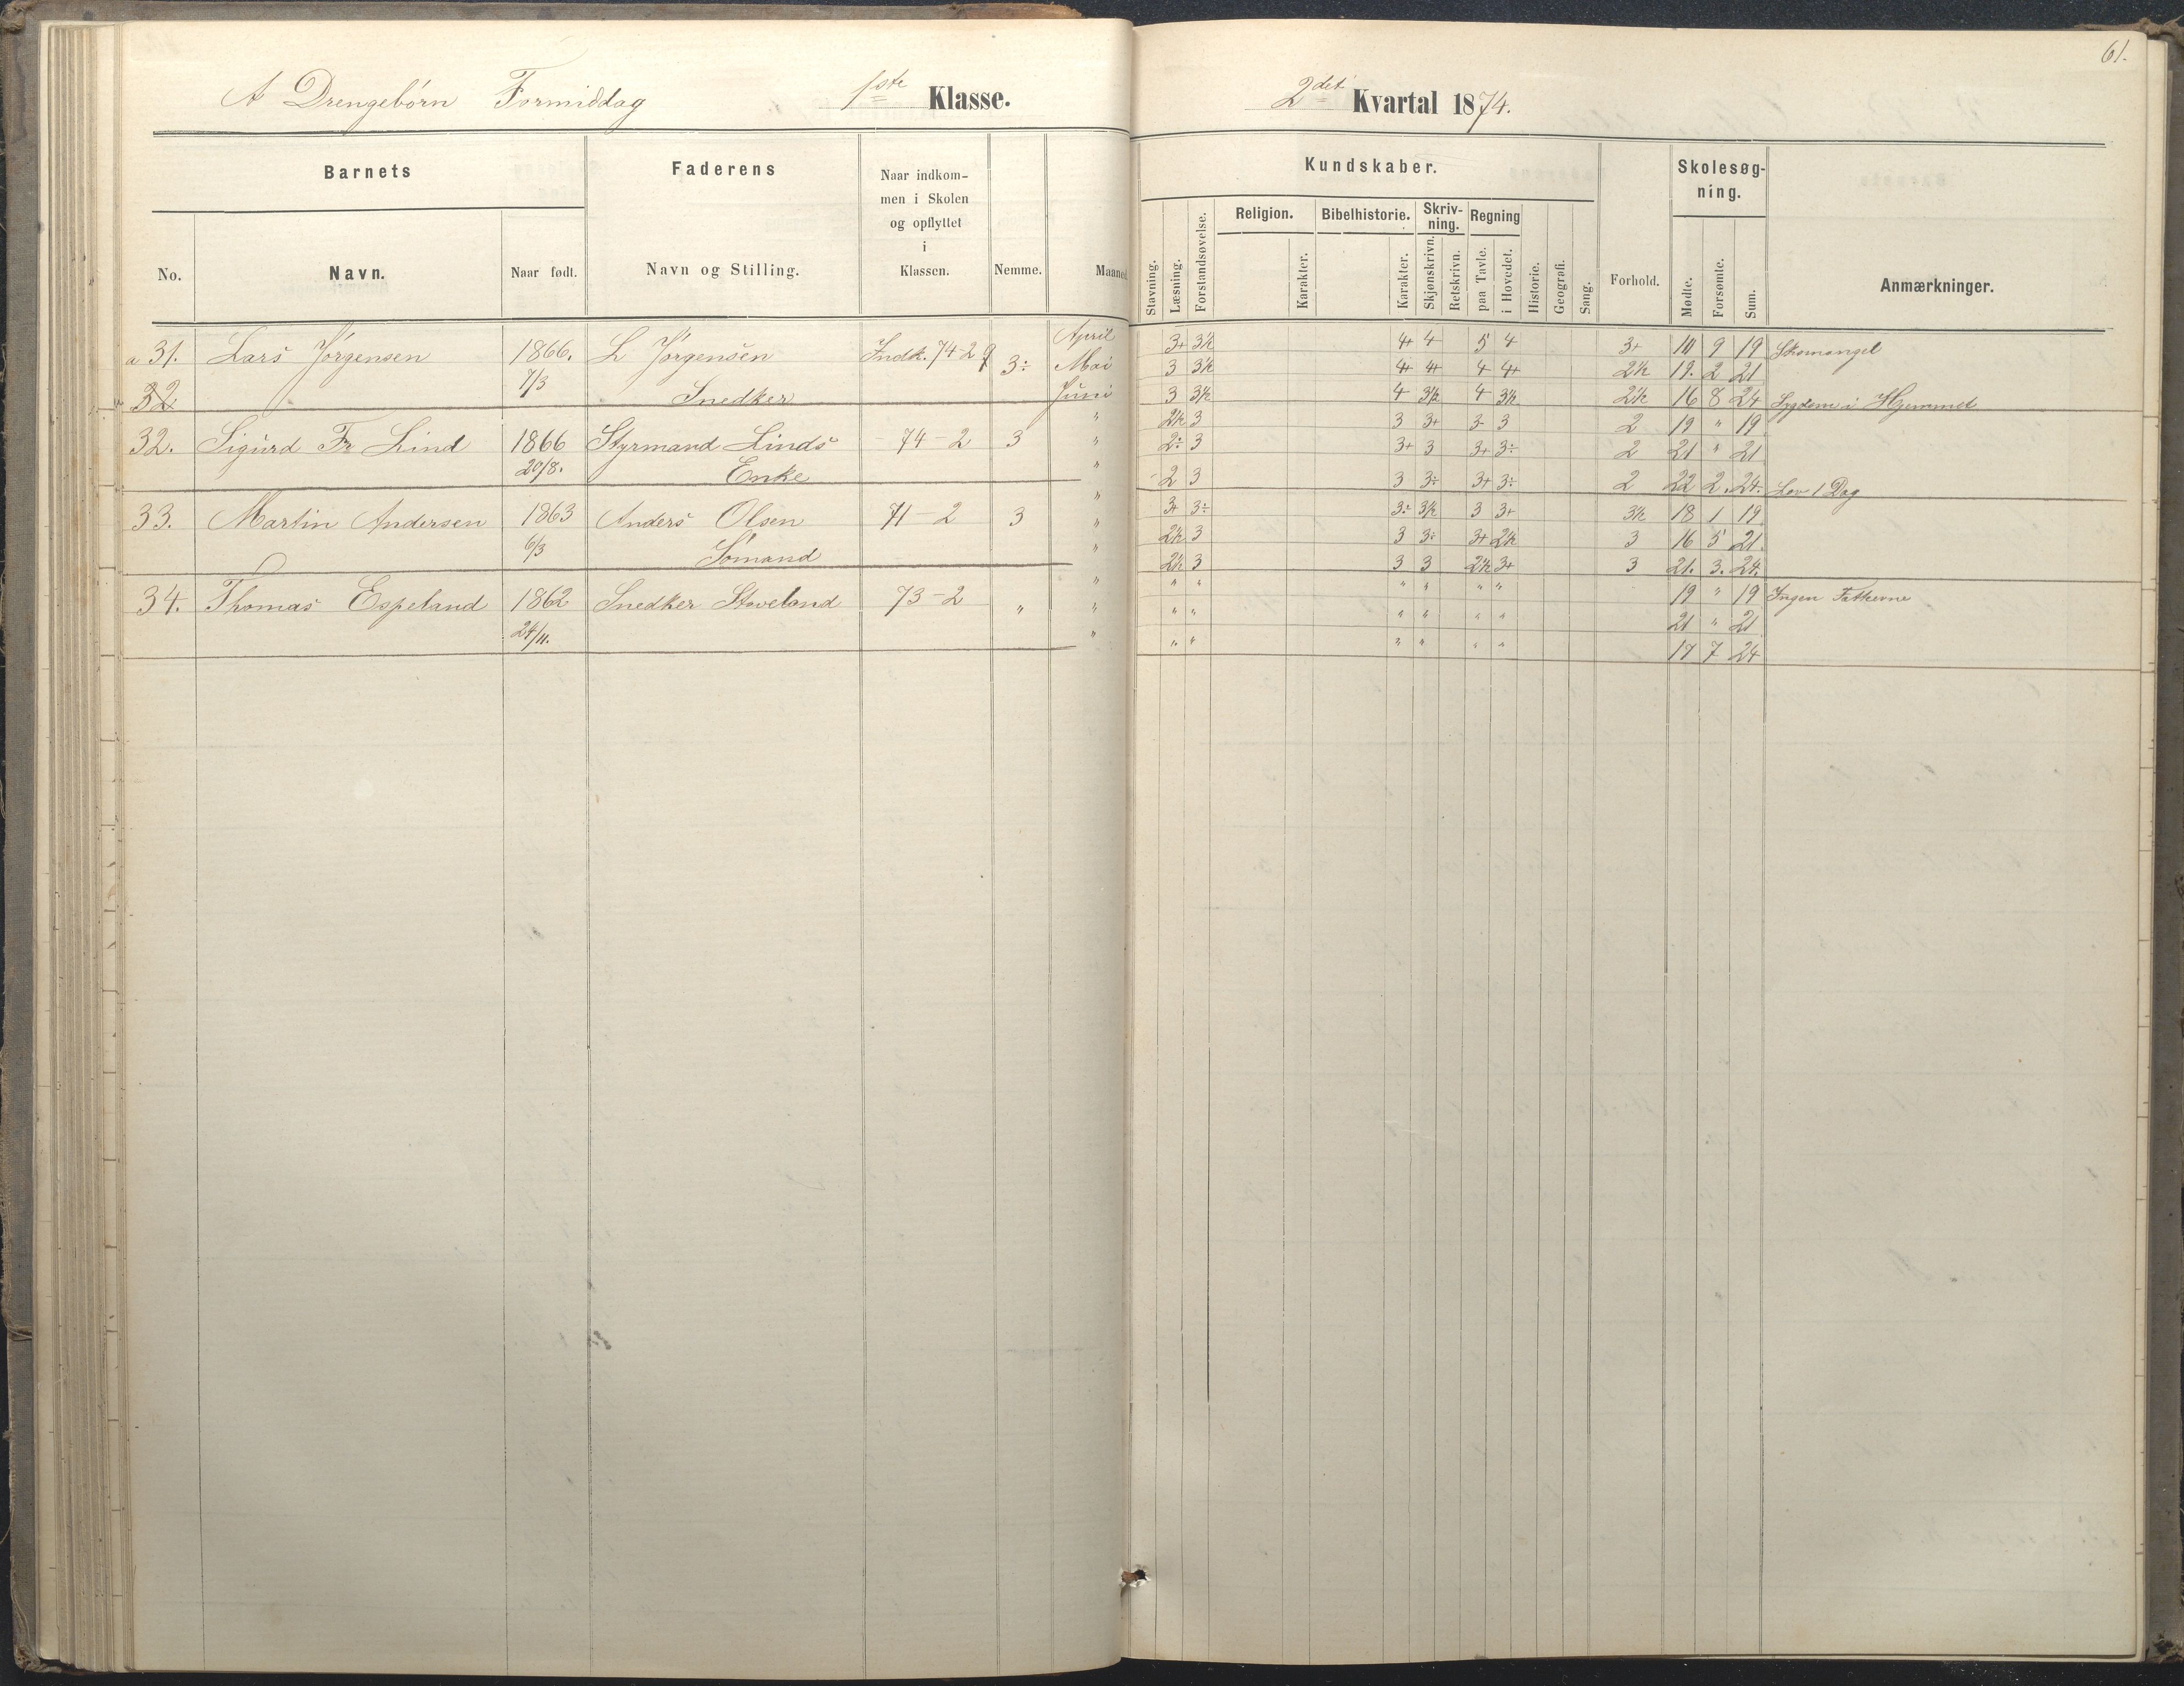 61.
A Drengebørn Formiddag 1ste Klasse. 2det Kvartal 1874.
Barnets Faderens Naar indkommen i Skolen og opflyttet i Klassen. Nemme. Maaned
No. Navn. Naar født. Navn og Stilling.
Kundskaber. Forhold. Skolesøgning. Anmærkninger.
Stavning. Læsning. Forstandsøvelse. Religion. Karakter. Bibelhistorie. Karakter. Skrivning. Skjønskrivn. Retskrivn. Regning paa Tavle. i Hovedet. Historie. Geografi. Sang. Mødte. Forsømte. Sum.
a 31. Lars Jørgensen 1866. L Jørgensen Indk. 74-2 3÷ April 3+ 3½ 4+ 4 5 4 3+ 10 9 19 Skomangel
7/3 Mai 3 3½ 4+ 4+ 4 4+ 2½ 19. 2 21
32 Snedker Juni 3 3½ 4 3½ 4 3½ 2½ 16 8 24 Sygdom i Hjemmet
" 2½ 3 3 3+ 3- 3 2 19 " 19
32. Sigurd Fr Lind 1866 Styrmand Linds -74-2 3 " 2÷ 3 3+ 3 3+ 3÷ 2 21 " 21
20/8. Enke " 2 3 3 3÷ 3+ 3÷ 2 22 2. 24. Lov 1 Dag
" 3+ 3÷ 3÷ 3½ 3 3+ 3½ 18 1 19
33. Martin Andersen 1863 Anders Olsen 71-2 3 " 2½ 3 3 3÷ 3+ 2½ 3 16 5 21.
6/3 Sømand " 2½ 3 3 3 2½ 3+ 3 21. 3. 24.
" " " " " " " 19 " 19 Ingen
34. Thomas Espeland 1862 Snedker Staveland 73-2 " " " " " " " " 21 " 21
24/11. " " " " " " " 17 7 24